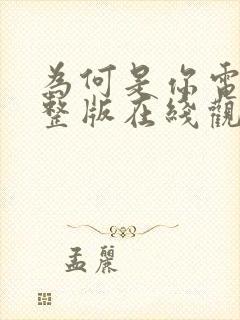 為何是你電
整版在綫觀
孟麗